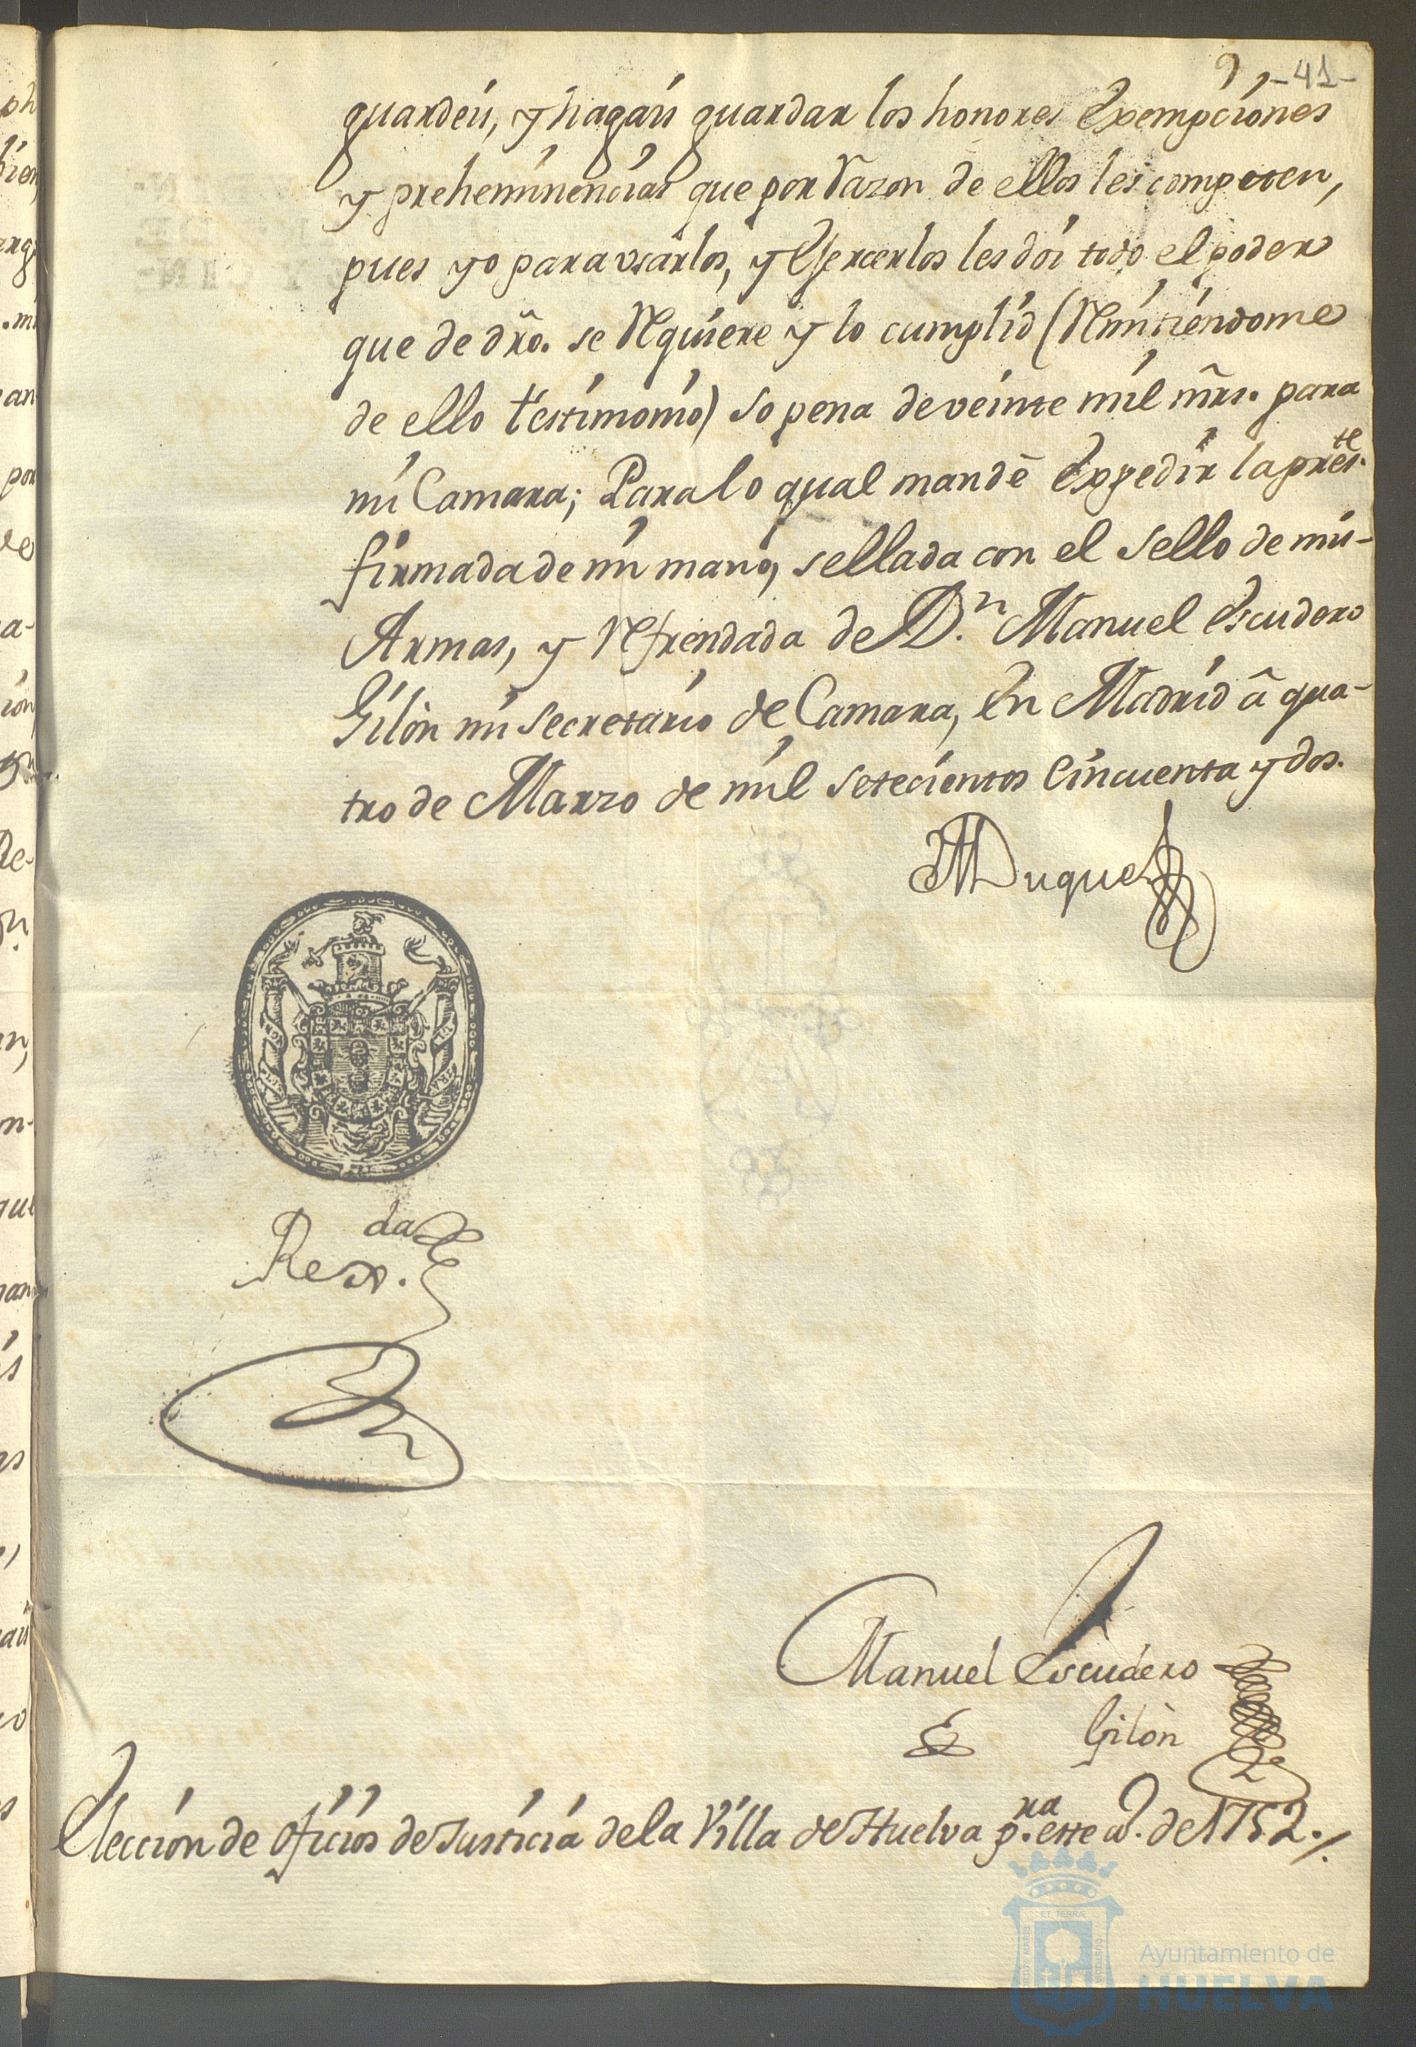 9 -41-
guardeis, y hagais guardar los honores exempciones
y preheminencias que por razon de ellos les competen,
pues yo para usarlos, y exercerlos les doi todo el poder
que de dr̃o. se requiere y lo cumplid (remitiendome
de ello testimonio) so pena de veinte mil mr̃s. para
mi Camara; Para lo qual mandè expedir la pres.te
firmada de mi mano, sellada con el sello de mis
Armas, y refrendada de D.n Manuel Escudero
Gilòn mi Secretario de Camara, En Madrid â qua-
tro de Marzo de mil setecientos cinquenta y dos.
Duque
Manuel Escudero
Gilòn
Elección de oficios de Justicia de la Villa de Huelva p.ra este a.º de 1752./.
Ayuntamiento de
HUELVA